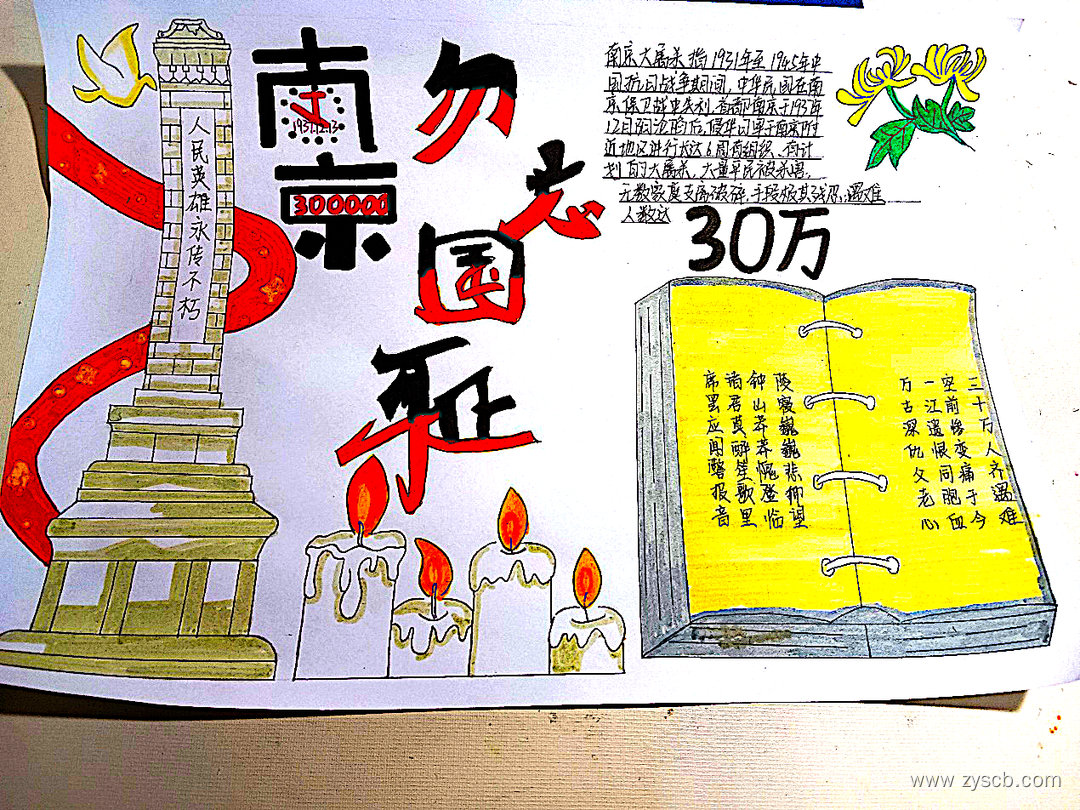 人民英雄永传不朽
南
1937.12.13
京
300000
勿忘国耻
南京大屠杀指1931年至1945年中
国抗日战争期间，中华民国在南
京保卫战中失利、首都南京于1937年
沦陷后，侵华日军于南京附
近地区进行长达6周有组织、有计
划的大屠杀，大量平民被杀害，
无数家庭支离破碎，手段极其残忍，遇难
人数达
30万
三十万人齐遇难
空前惨变痛于今
一江遗恨同胞血
万古深仇父老心
陵寝巍巍悲仰望
钟山莽莽慨登临
诸君莫醉笙歌里
席罢应闻警报音
www.zyscb.com